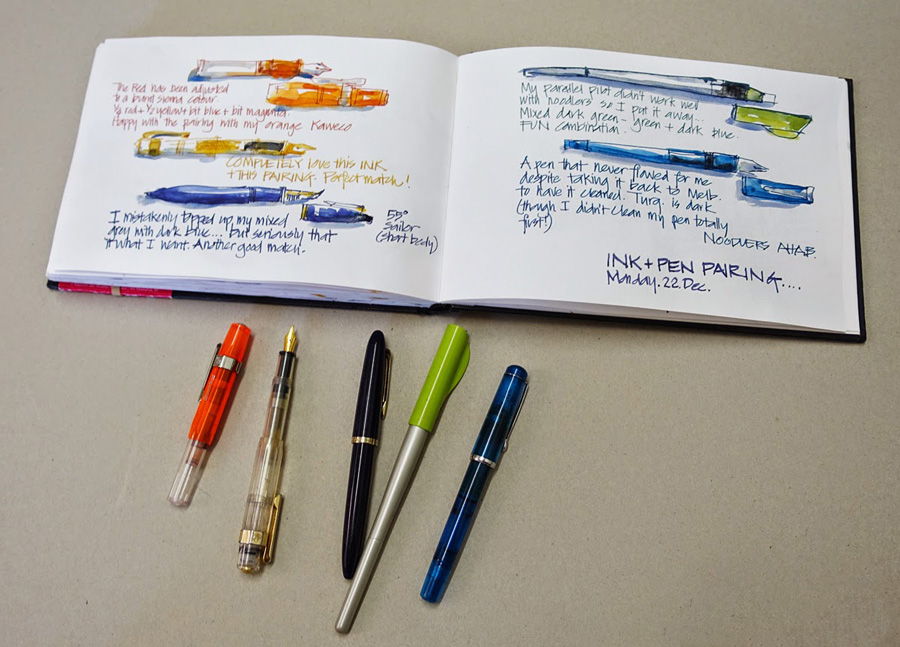 The Red has been adjusted
to a burnt sienna colour.
½ red + ½ yellow + bit blue + bit magenta.
Happy with the pairing with my orange Kaweco
COMPLETELY love this INK
+ THIS PAIRING. Perfect match!
I mistakenly topped up my mixed
grey with dark blue.... but seriously that
it what I want. Another good match.
55°
Sailor
(short body)
My parallel pilot didn't work well
with noodlers so I put it away...
Mixed dark green - green + dark blue.
FUN combination.
A pen that never flowed for me
despite taking it back to Melb.
to have it cleaned. Turq. is dark
(though I didn't clean my pen totally
first!)
NOODLERS AHAB.
INK + PEN PAIRING....
Monday. 22. Dec.